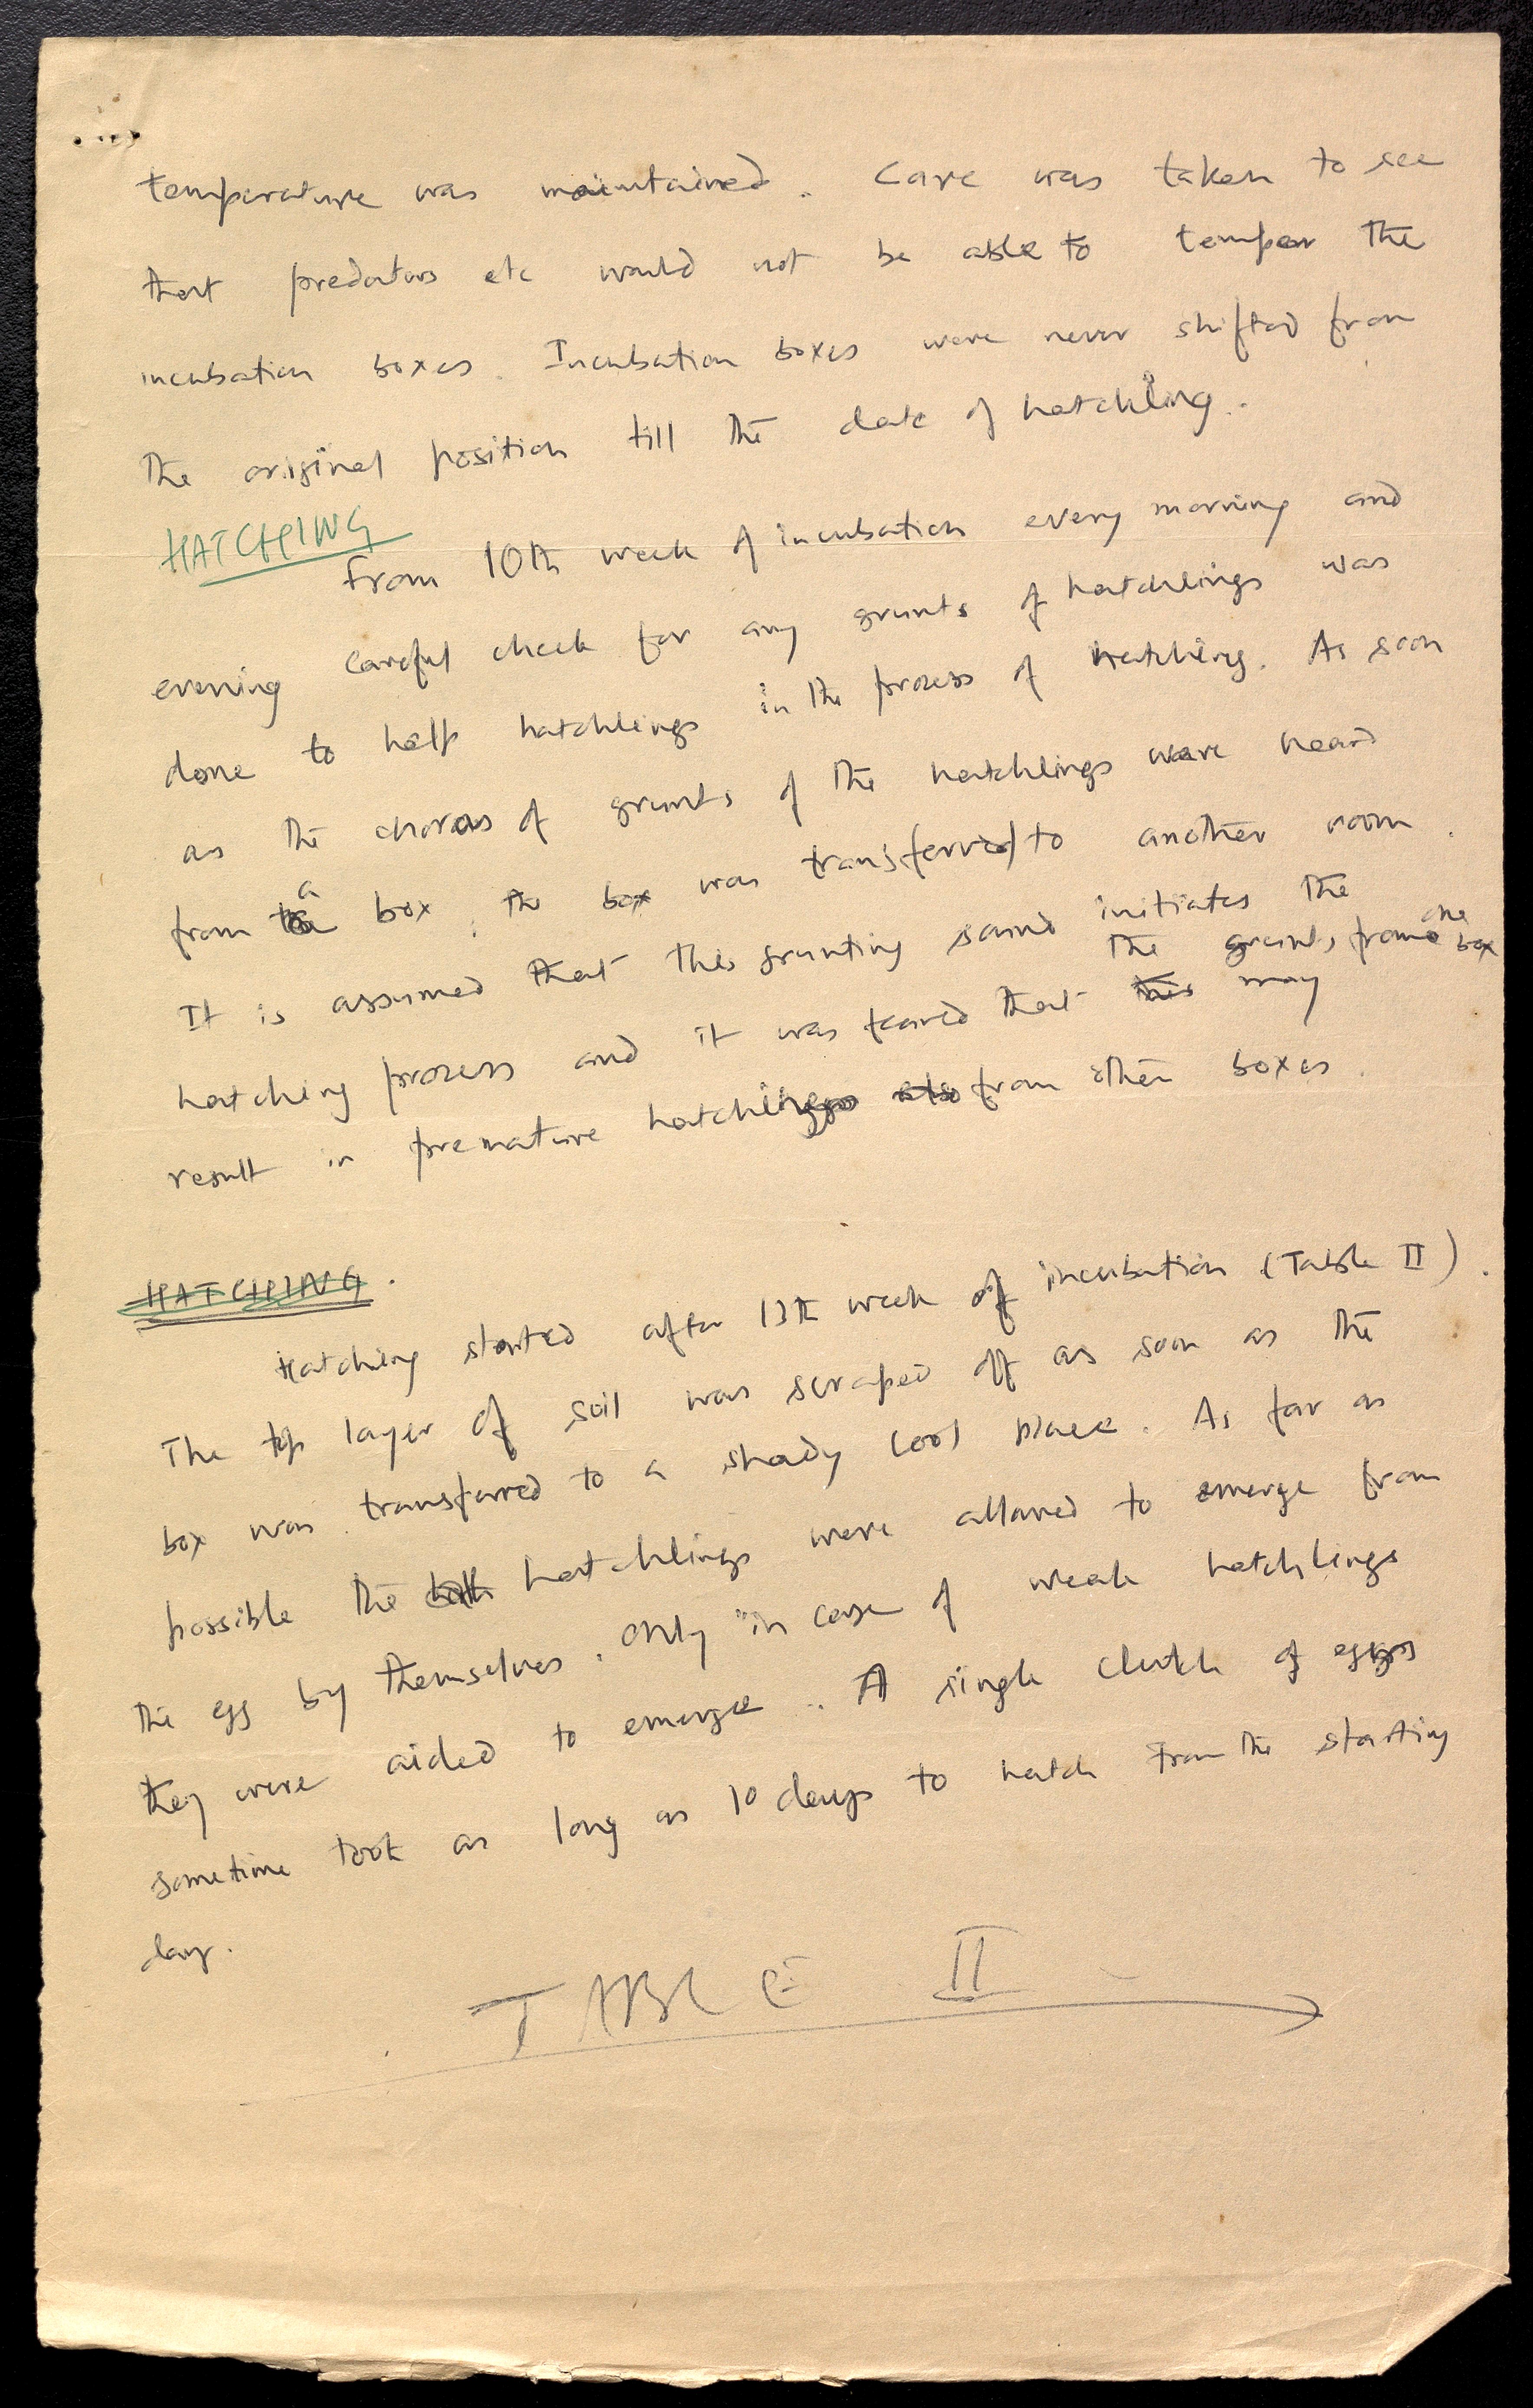 temperature was maintained. Care was taken to see
that predators etc would not be able to temper the
incubation boxes. Incubation boxes were never shifted from
the original position till the date of hatchling.
HATCHING
From 10th week of incubation every morning and
evening careful check for any grunts of hatchlings was
done to help hatchlings in the process of hatching. As soon
as the chorus of grunts of the hatchlings were heard
from a box, the box was transferred to another room.
It is assumed that this grunting sound initiates the
hatching process and it was feared that the grunts from one box may
result in premature hatching from other boxes.
HATCHING.
Hatching started after 13th week of incubation (Table II).
The top layer of soil was scraped off as soon as the
box was transferred to a shady cool place. As far as
possible the hatchlings were allowed to emerge from
the egg by themselves. Only in case of weak hatchlings
they were aided to emerge. A single clutch of eggs
sometime took as long as 10 days to hatch from the starting
day.
TABLE II